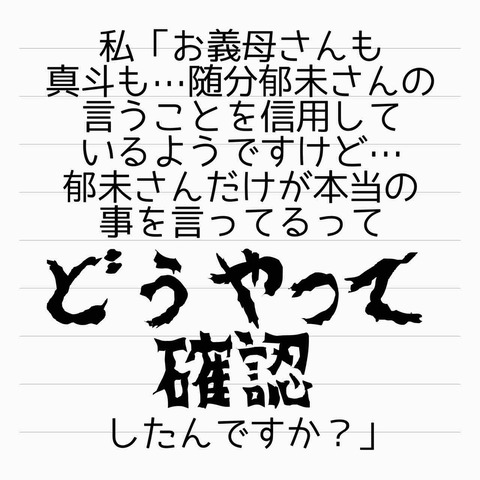 私「お義母さんも
真斗も…随分郁未さんの
言うことを信用して
いるようですけど…
郁未さんだけが本当の
事を言ってるって
どうやって
確認
したんですか？」